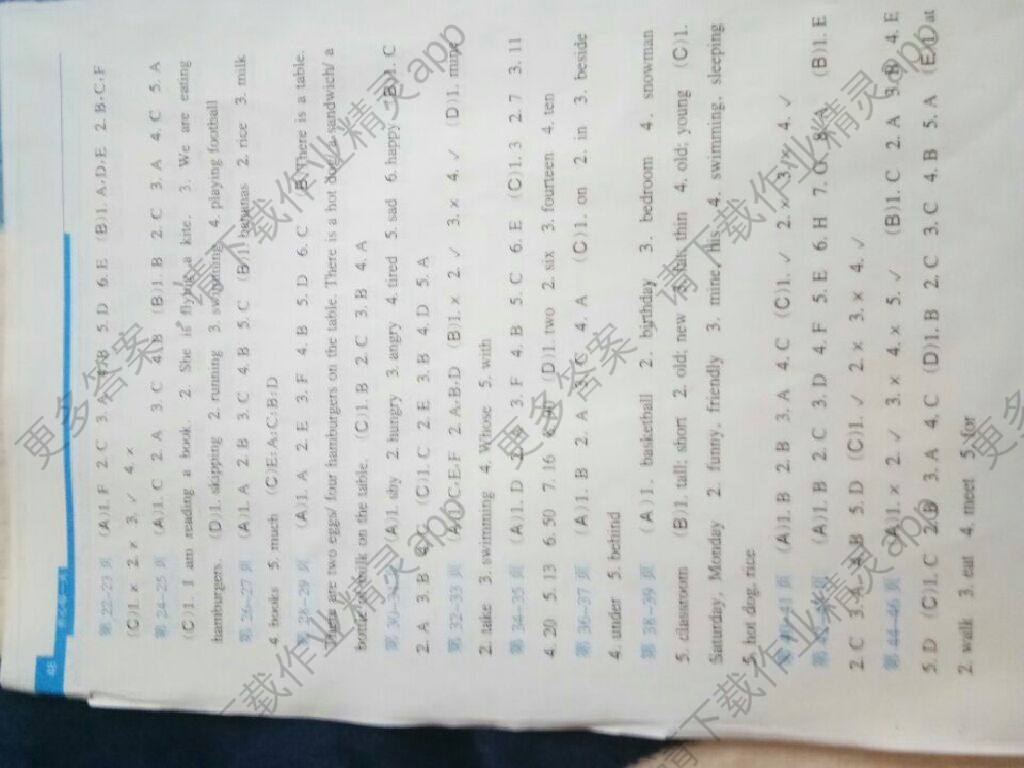 48
第 22-23 页 (A)1. F 2. C 3. 4. B 5. D 6. E (B)1. A,D,E 2. B,C,F
(C)1. × 2. × 3. ✓ 4. ×
第 24-25 页 (A)1. C 2. A 3. C 4. B (B)1. B 2. C 3. A 4. C 5. A
(C)1. I am reading a book. 2. She is flying a kite. 3. We are eating
hamburgers. (D)1. skipping 2. running 3. swimming 4. playing football
第 26-27 页 (A)1. A 2. B 3. C 4. B 5. C (B)1. bananas 2. rice 3. milk
4. books 5. much (C)E;A;C;B;D
第 28-29 页 (A)1. A 2. E 3. F 4. B 5. D 6. C (B)There is a table.
There are two eggs/ four hamburgers on the table. There is a hot dog/ a sandwich/ a
bottle of milk on the table. (C)1. B 2. C 3. B 4. A
第 30-31 页 (A)1. shy 2. hungry 3. angry 4. tired 5. sad 6. happy (B)1. C
2. A 3. B 4. C (C)1. C 2. E 3. B 4. D 5. A
第 32-33 页 (A)1. C,E,F 2. A,B,D (B)1. × 2. ✓ 3. × 4. ✓ (D)1. mine
2. take 3. swimming 4. Whose 5. with
第 34-35 页 (A)1. D 2. 3. F 4. B 5. C 6. E (C)1. 3 2. 7 3. 11
4. 20 5. 13 6. 50 7. 16 8. (D)1. two 2. six 3. fourteen 4. ten
第 36-37 页 (A)1. B 2. A 3. C 4. A (C)1. on 2. in 3. beside
4. under 5. behind
第 38-39 页 (A)1. basketball 2. birthday 3. bedroom 4. snowman
5. classroom (B)1. tall; short 2. old; new 3. fat; thin 4. old; young (C)1.
Saturday, Monday 2. funny, friendly 3. mine, his 4. swimming, sleeping
5. hot dog, rice
第 40-41 页 (A)1. B 2. B 3. A 4. C (C)1. ✓ 2. × 3. 4. ✓
第 页 (A)1. B 2. C 3. D 4. F 5. E 6. H 7. G 8. A (B)1. E
2. C 3. A 4. B 5. D (C)1. ✓ 2. × 3. × 4. ✓
第 44-46 页 (A)1. × 2. ✓ 3. × 4. × 5. ✓ (B)1. C 2. A 3. B 4. E
5. D (C)1. C 2. B 3. A 4. C (D)1. B 2. C 3. C 4. B 5. A (E)1. at
2. walk 3. eat 4. meet 5. for
更多答案,请下载作业精灵app
更多答案,请下载作业精灵app
更多答案,请下载作业精灵app
更多答案,请下载作业精灵app